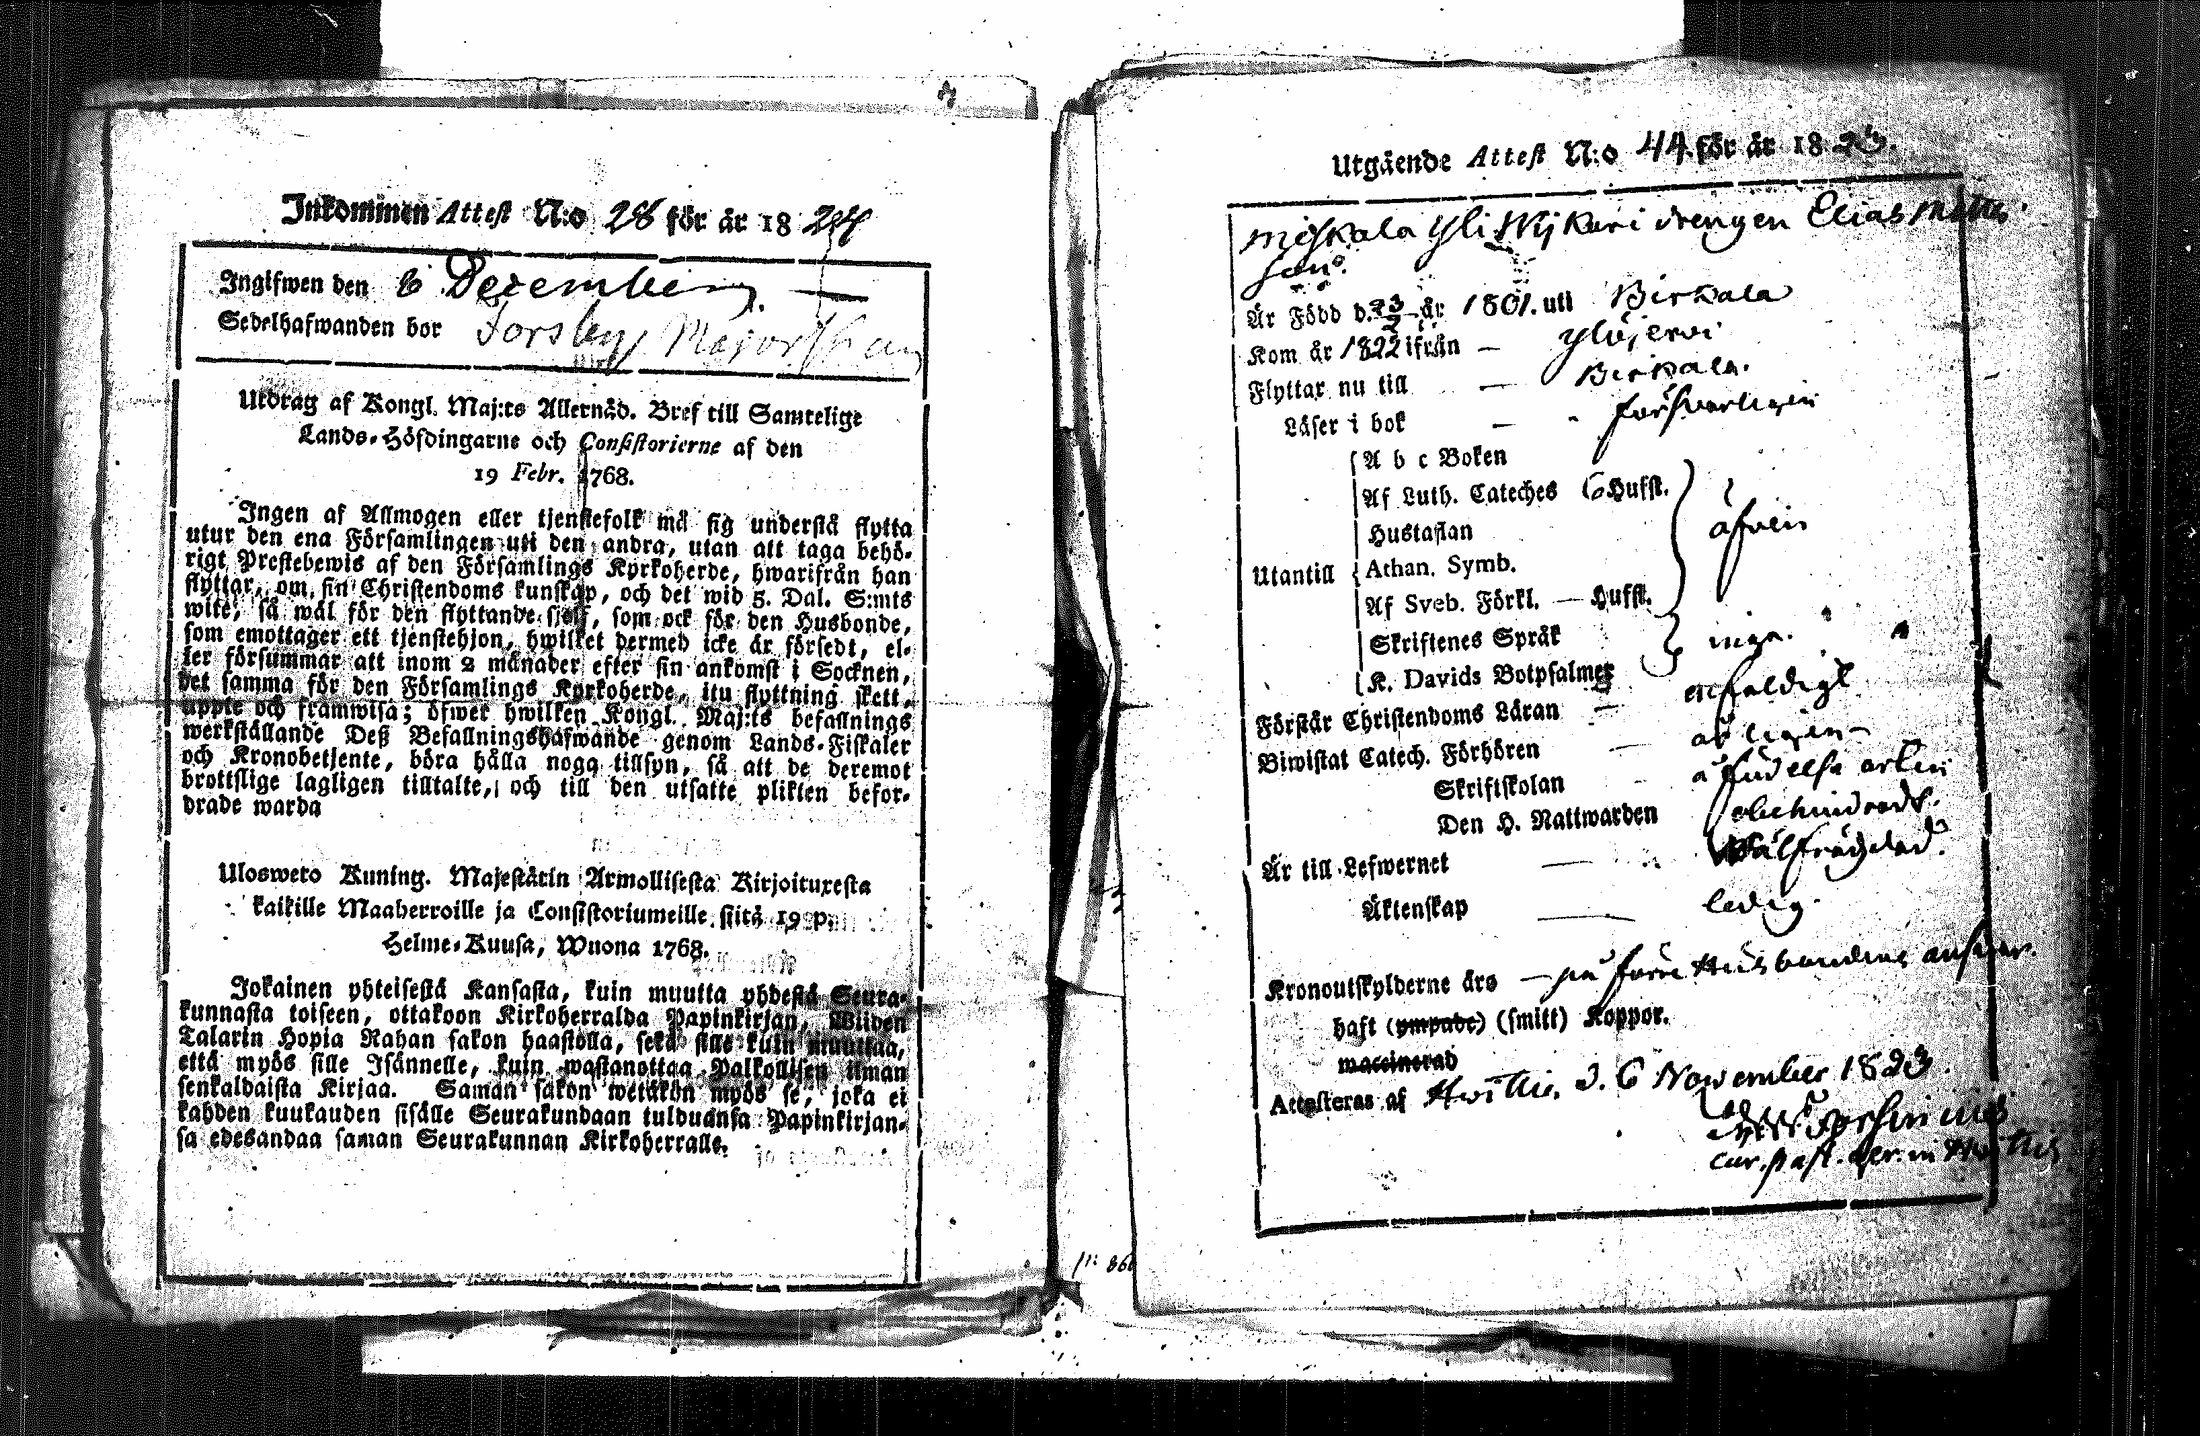 Inkommen Attest N:o 28 för år 1824
Ingifwen den 6 December
Sedelhafwanden bor Forsby
Utdrag af Kongl. Maj:ts Allernåd. Bref till Samtelige
Lands-Höfdingarne och Consistorierne af den
19 Febr. 1768.
Ingen af Allmogen eller tjenstefolk må sig understå flytta
utur den ena Församlingen uti den andra, utan att taga behö-
rigt Prestebewis af den Församlings Kyrkoherde, hwarifrån han
flyttar, om sin Christendoms kunskap, och det wid 5. Dal. S:mts
wite, så wäl för den flyttande sjelf, som ock för den Husbonde,
som emottager ett tjenstehjon, hwilket dermed icke är försedt, el-
ler försummar att inom 2 månader efter sin ankomst i Socknen,
det samma för den Församlings Kyrkoherde, itu flyttning skett,
uppte och framwisa; öfwer hwilken Kongl. Maj:ts befallnings
werkställande Deß Befallningshafwande genom Lands-Fiskaler
och Kronobetjente, böra hålla noga tillsyn, så att de deremot
brottslige lagligen tilltalte, och till den utsatte plikten befor-
drade warda
Ulosweto Kuning. Majestätin Armollisesta Kirjoituxesta
kaikille Maaherroille ja Consistoriumeille siitä 19 p.
Helme-Kuusa, Wuona 1768.
Jokainen yhteisestä Kansasta, kuin muutta yhdestä Seura-
kunnasta toiseen, ottakoon Kirkoherralda Papinkirjan, Wiiden
Talarin Hopia Rahan sakon haastolla, sekä sille kuin muuttaa,
että myös sille Isännelle, kuin wastanottaa Palkollisen ilman
senkaldaista Kirjaa. Saman sakon wetäkön myös se, joka ei
kahden kuukauden sisälle Seurakundaan tulduansa Papinkirjan-
sa edesandaa saman Seurakunnan Kirkoherralle.
Utgående Attest N:o 44 för år 1823.
Yli Wijkari drengen Elias Matts
son.
Är Född d. 23/2 år 1801. uti Birkala
Kom år 1822 ifrån — Ylöjerwi
Flyttar nu till — Birkala.
Läser i bok — försvarligen
A b c Boken
Af Luth. Cateches 6 Hufst.
Hustaflan
äfven
Utantill
Athan. Symb.
Af Sveb. Förkl. — Hufst.
Skriftenes Språk
inga.
K. Davids Botpsalmer
Förstår Christendoms Läran — enfaldigt
Biwistat Catech. Förhören — årligen
Skriftskolan
Den H. Nattwarden obehindradt.
Är till Lefwernet — Wälfrägdad.
Äktenskap — ledig.
Kronoutskylderne äro — på förre Husbondens answar.
haft (ympade) (smitt) Koppor.
waccinerad
Attesteras af Hwittis, d. 6 November 1823.
cur. past. ger. in Hwittis